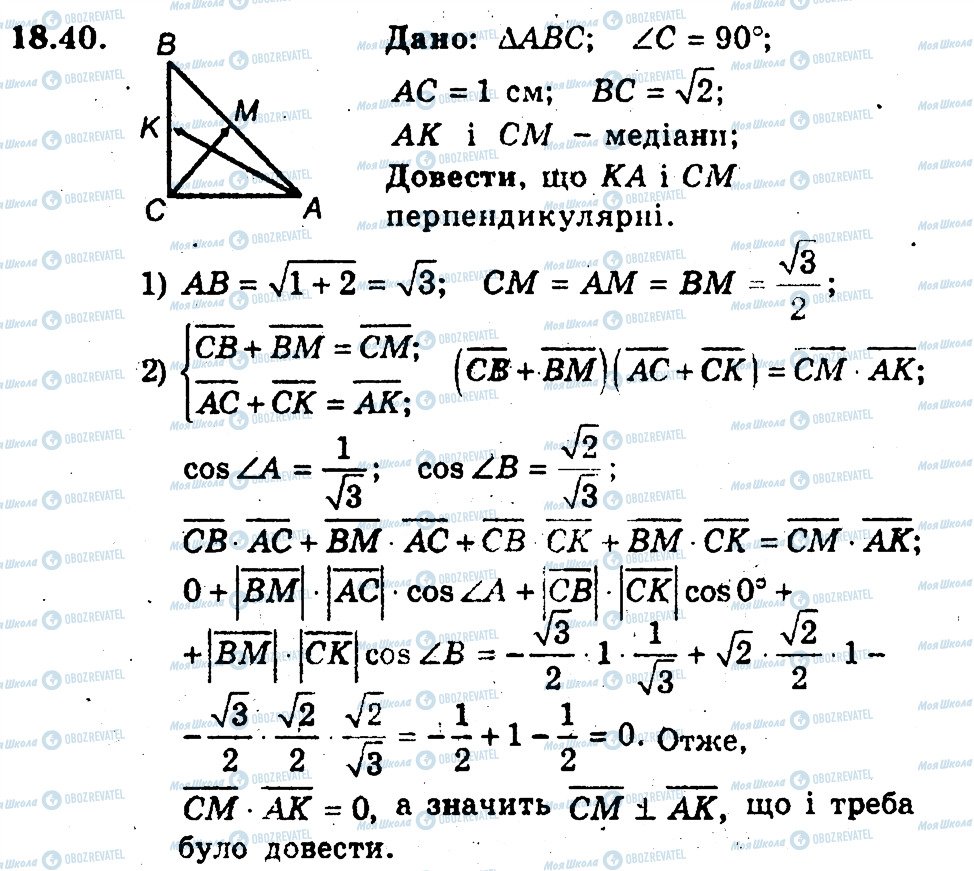 18.40.
B
K
M
C
A
Дано: ΔABC; ∠C = 90°;
AC = 1 см; BC = √2;
AK і CM – медіани;
Довести, що KA і CM
перпендикулярні.
1) AB = √(1 + 2) = √3; CM = AM = BM = √3/2;
2) { C̅B̅ + B̅M̅ = C̅M̅; A̅C̅ + C̅K̅ = A̅K̅; (C̅B̅ + B̅M̅)(A̅C̅ + C̅K̅) = C̅M̅ · A̅K̅;
cos∠A = 1/√3; cos∠B = √2/√3;
C̅B̅ · A̅C̅ + B̅M̅ · A̅C̅ + C̅B̅ · C̅K̅ + B̅M̅ · C̅K̅ = C̅M̅ · A̅K̅;
0 + |B̅M̅| · |A̅C̅| · cos∠A + |C̅B̅| · |C̅K̅| cos0° +
+ |B̅M̅| · |C̅K̅| cos∠B = – √3/2 · 1 · 1/√3 + √2 · √2/2 · 1 –
– √3/2 · √2/2 · √2/√3 = – 1/2 + 1 – 1/2 = 0. Отже,
C̅M̅ · A̅K̅ = 0, а значить C̅M̅ ⊥ A̅K̅, що і треба
було довести.
МояШкола OBOZREVATEL